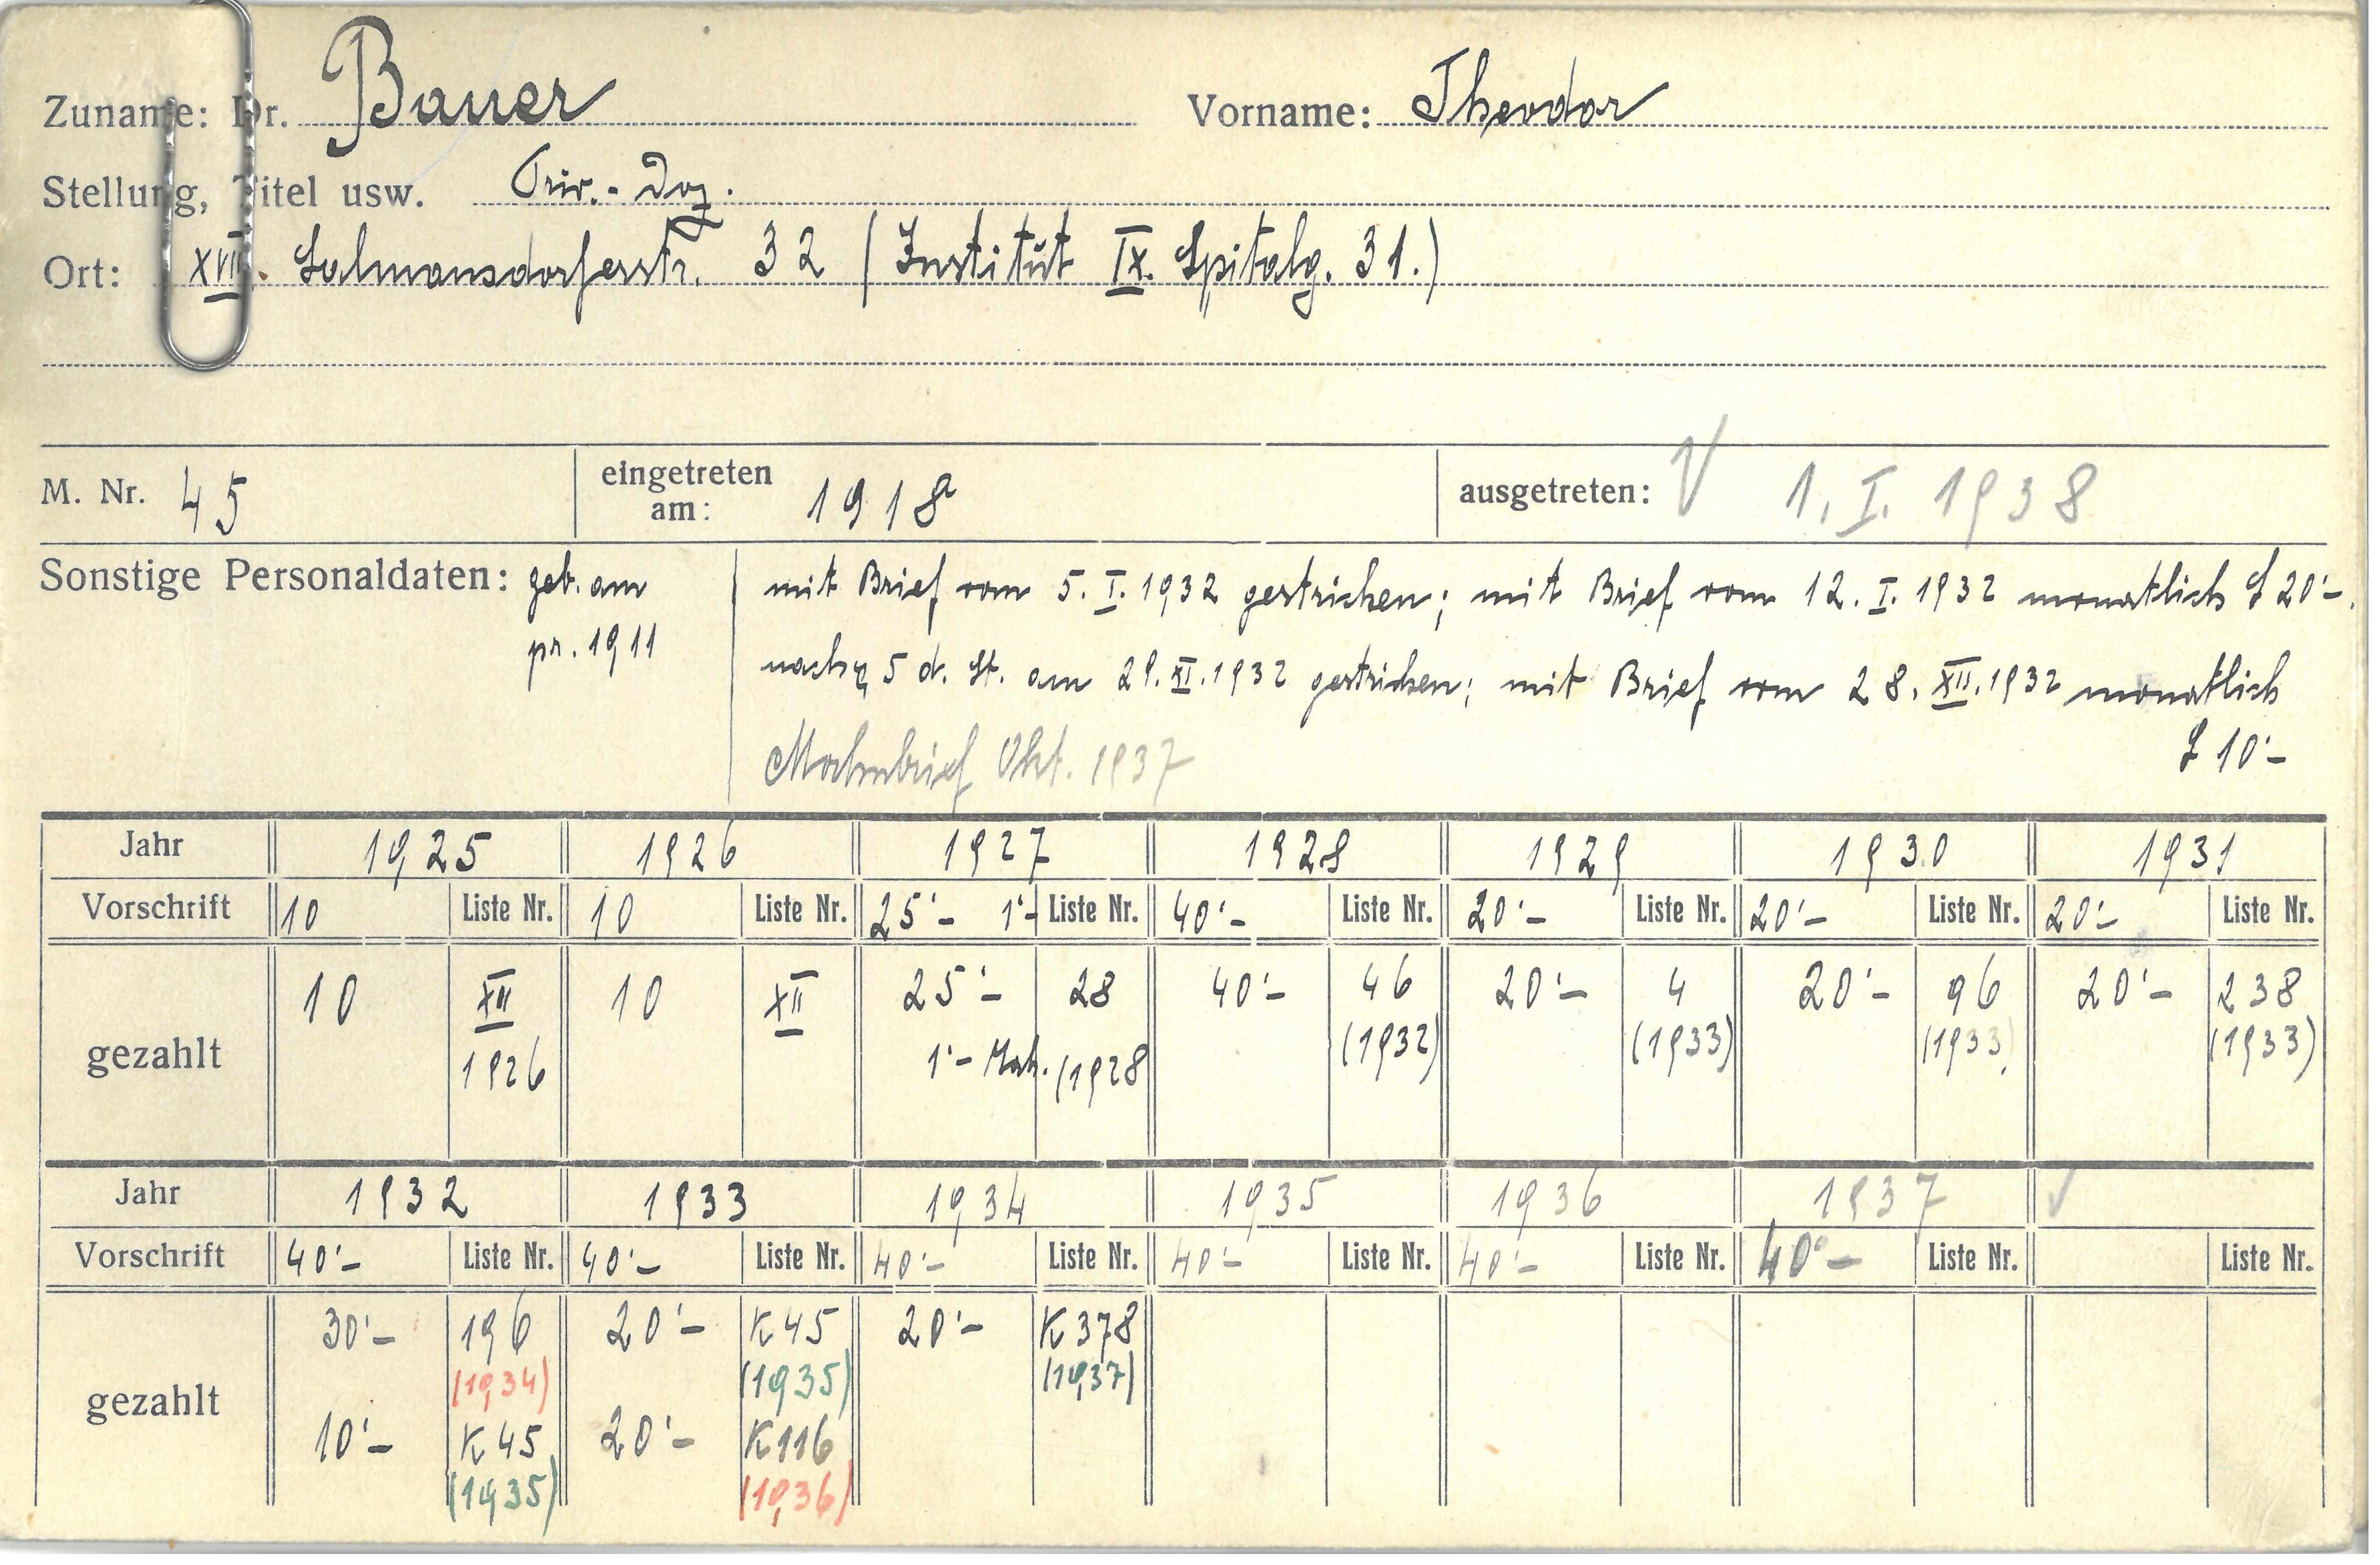 Zuname: Dr. Bauer Vorname: Theodor
Stellung, Titel usw. Priv.-Doz.
Ort: XVII. Salmansdorferstr. 32 (Institut IX. Spitalg. 31.)
M. Nr. 45 eingetreten am: 1918 ausgetreten: 1. I. 1938
Sonstige Personaldaten: geb. am
pr. 1911
mit Brief vom 5. I. 1932 gestrichen; mit Brief vom 12. I. 1932 monatlich S 20'-.
nach § 5 d. St. am 29. XI. 1932 gestrichen; mit Brief vom 28. XII. 1932 monatlich
S 10'-
Mahnbrief Okt. 1937
Jahr 1925 1926 1927 1928 1929 1930 1931
Vorschrift 10 Liste Nr. 10 Liste Nr. 25'- 1'- Liste Nr. 40'- Liste Nr. 20'- Liste Nr. 20'- Liste Nr. 20'- Liste Nr.
gezahlt 10 XII 10 XII 25'- 28 40'- 46 20'- 4 20'- 96 20'- 238
1926 1'- (1928 (1932) (1933) (1933) (1933)
Jahr 1932 1933 1934 1935 1936 1937 ✓
Vorschrift 40'- Liste Nr. 40'- Liste Nr. 40'- Liste Nr. 40'- Liste Nr. 40'- Liste Nr. 40'- Liste Nr. Liste Nr.
gezahlt 30'- 196 20'- K 45 20'- K 378
(1934) (1935) (1937)
10'- K 45 20'- K 116
(1935) (1936)